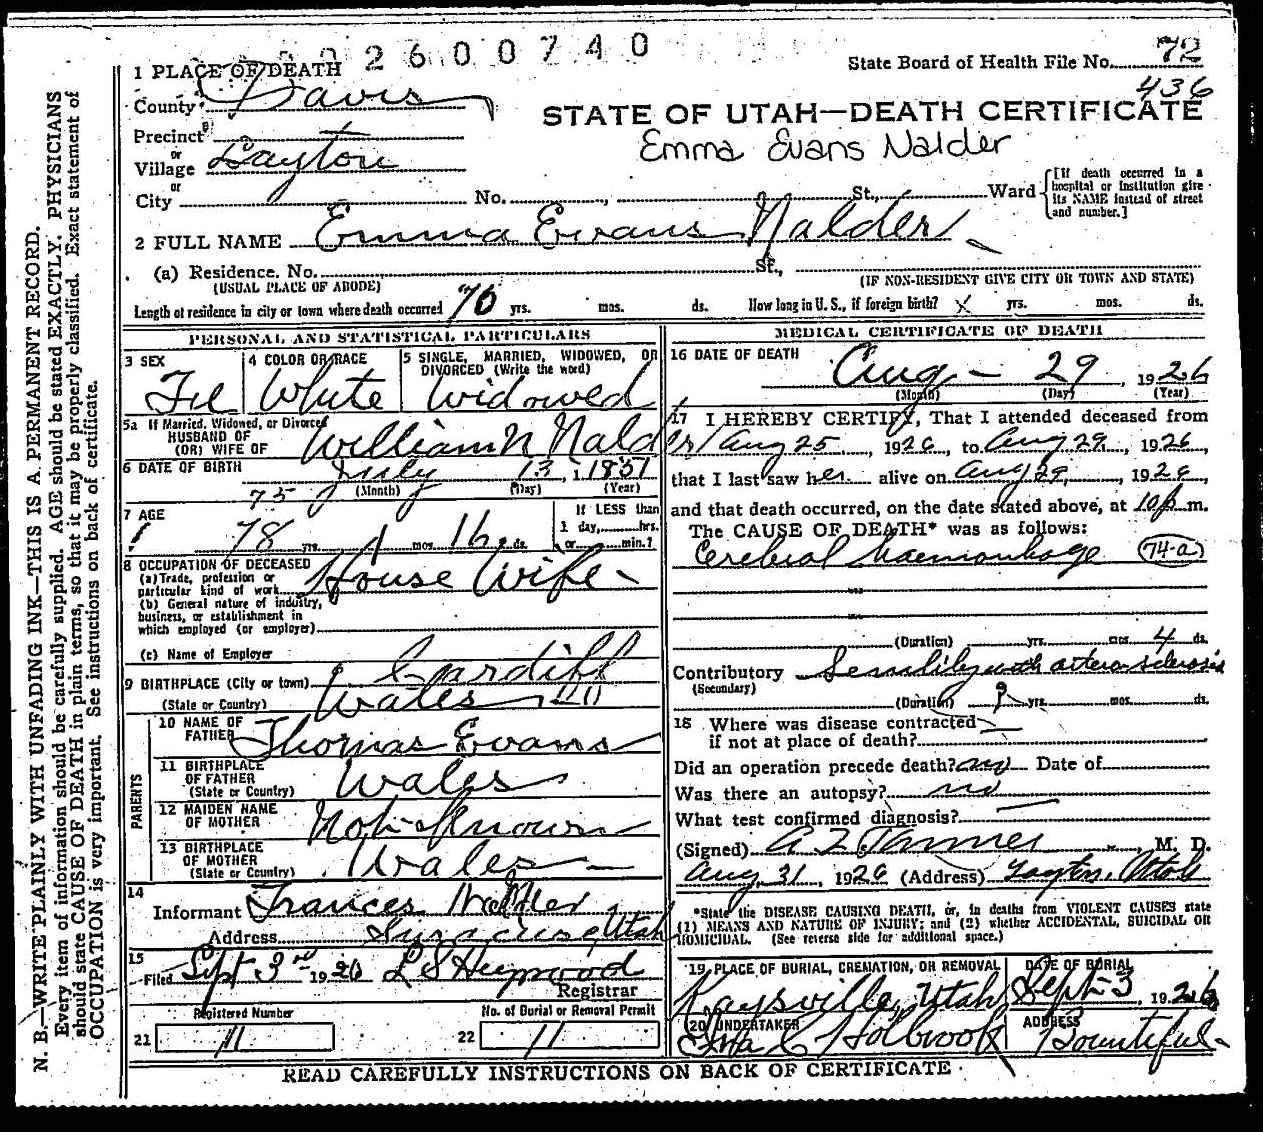 2600740
State Board of Health File No. 72
436
1 PLACE OF DEATH
County Davis
STATE OF UTAH—DEATH CERTIFICATE
Emma Evans Nalder
Precinct
or
Village Layton
or
City No. St., Ward
[If death occurred in a hospital or institution give its NAME instead of street and number.]
2 FULL NAME Emma Evans Nalder
(a) Residence. No. St.,
(USUAL PLACE OF ABODE) (IF NON-RESIDENT GIVE CITY OR TOWN AND STATE)
Length of residence in city or town where death occurred 70 yrs. mos. ds. How long in U. S., if foreign birth? x yrs. mos. ds.
PERSONAL AND STATISTICAL PARTICULARS
3 SEX
4 COLOR OR RACE
5 SINGLE, MARRIED, WIDOWED, OR DIVORCED (Write the word)
White Widowed
5a If Married, Widowed, or Divorced
HUSBAND OF
(OR) WIFE OF William N Nalder
6 DATE OF BIRTH July 13, 1851
(Month) (Day) (Year)
75
7 AGE
78 yrs. 1 mos. 16 ds.
If LESS than
1 day, hrs.
or min.?
8 OCCUPATION OF DECEASED
(a) Trade, profession or
particular kind of work House Wife
(b) General nature of industry,
business, or establishment in
which employed (or employer)
(c) Name of Employer
9 BIRTHPLACE (City or town) Cardiff
(State or Country) Wales
PARENTS
10 NAME OF
FATHER Thomas Evans
11 BIRTHPLACE
OF FATHER
(State or Country) Wales
12 MAIDEN NAME
OF MOTHER Not Known
13 BIRTHPLACE
OF MOTHER
(State or Country) Wales
14
Informant Frances Nalder
Address Syracuse, Utah
15
Filed Sept 3rd 1926 L S Heywood
Registrar
Registered Number
No. of Burial or Removal Permit
21 11
22 11
MEDICAL CERTIFICATE OF DEATH
16 DATE OF DEATH
Aug - 29, 1926
(Month) (Day) (Year)
17 I HEREBY CERTIFY, That I attended deceased from
Aug 25, 1926, to Aug 29, 1926,
that I last saw her alive on Aug 29, 1926,
and that death occurred, on the date stated above, at 10 p m.
The CAUSE OF DEATH* was as follows:
Cerebral haemorrhage 74-a
(Duration) yrs. mos. 4 ds.
Contributory Senility with arterio sclerosis
(Secondary)
(Duration) ? yrs. mos. ds.
18 Where was disease contracted
if not at place of death?
Did an operation precede death? no Date of
Was there an autopsy? no
What test confirmed diagnosis?
(Signed) A Z Tanner, M. D.
Aug 31, 1926 (Address) Layton, Utah
*State the DISEASE CAUSING DEATH, or, in deaths from VIOLENT CAUSES state
(1) MEANS AND NATURE OF INJURY; and (2) whether ACCIDENTAL, SUICIDAL OR
HOMICIDAL. (See reverse side for additional space.)
19 PLACE OF BURIAL, CREMATION, OR REMOVAL
DATE OF BURIAL
Kaysville, Utah Sept 3, 1926
20 UNDERTAKER
ADDRESS
Holbrook Bountiful
READ CAREFULLY INSTRUCTIONS ON BACK OF CERTIFICATE
N. B.—WRITE PLAINLY WITH UNFADING INK—THIS IS A PERMANENT RECORD.
Every item of information should be carefully supplied. AGE should be stated EXACTLY. PHYSICIANS
should state CAUSE OF DEATH in plain terms, so that it may be properly classified. Exact statement of
OCCUPATION is very important. See instructions on back of certificate.